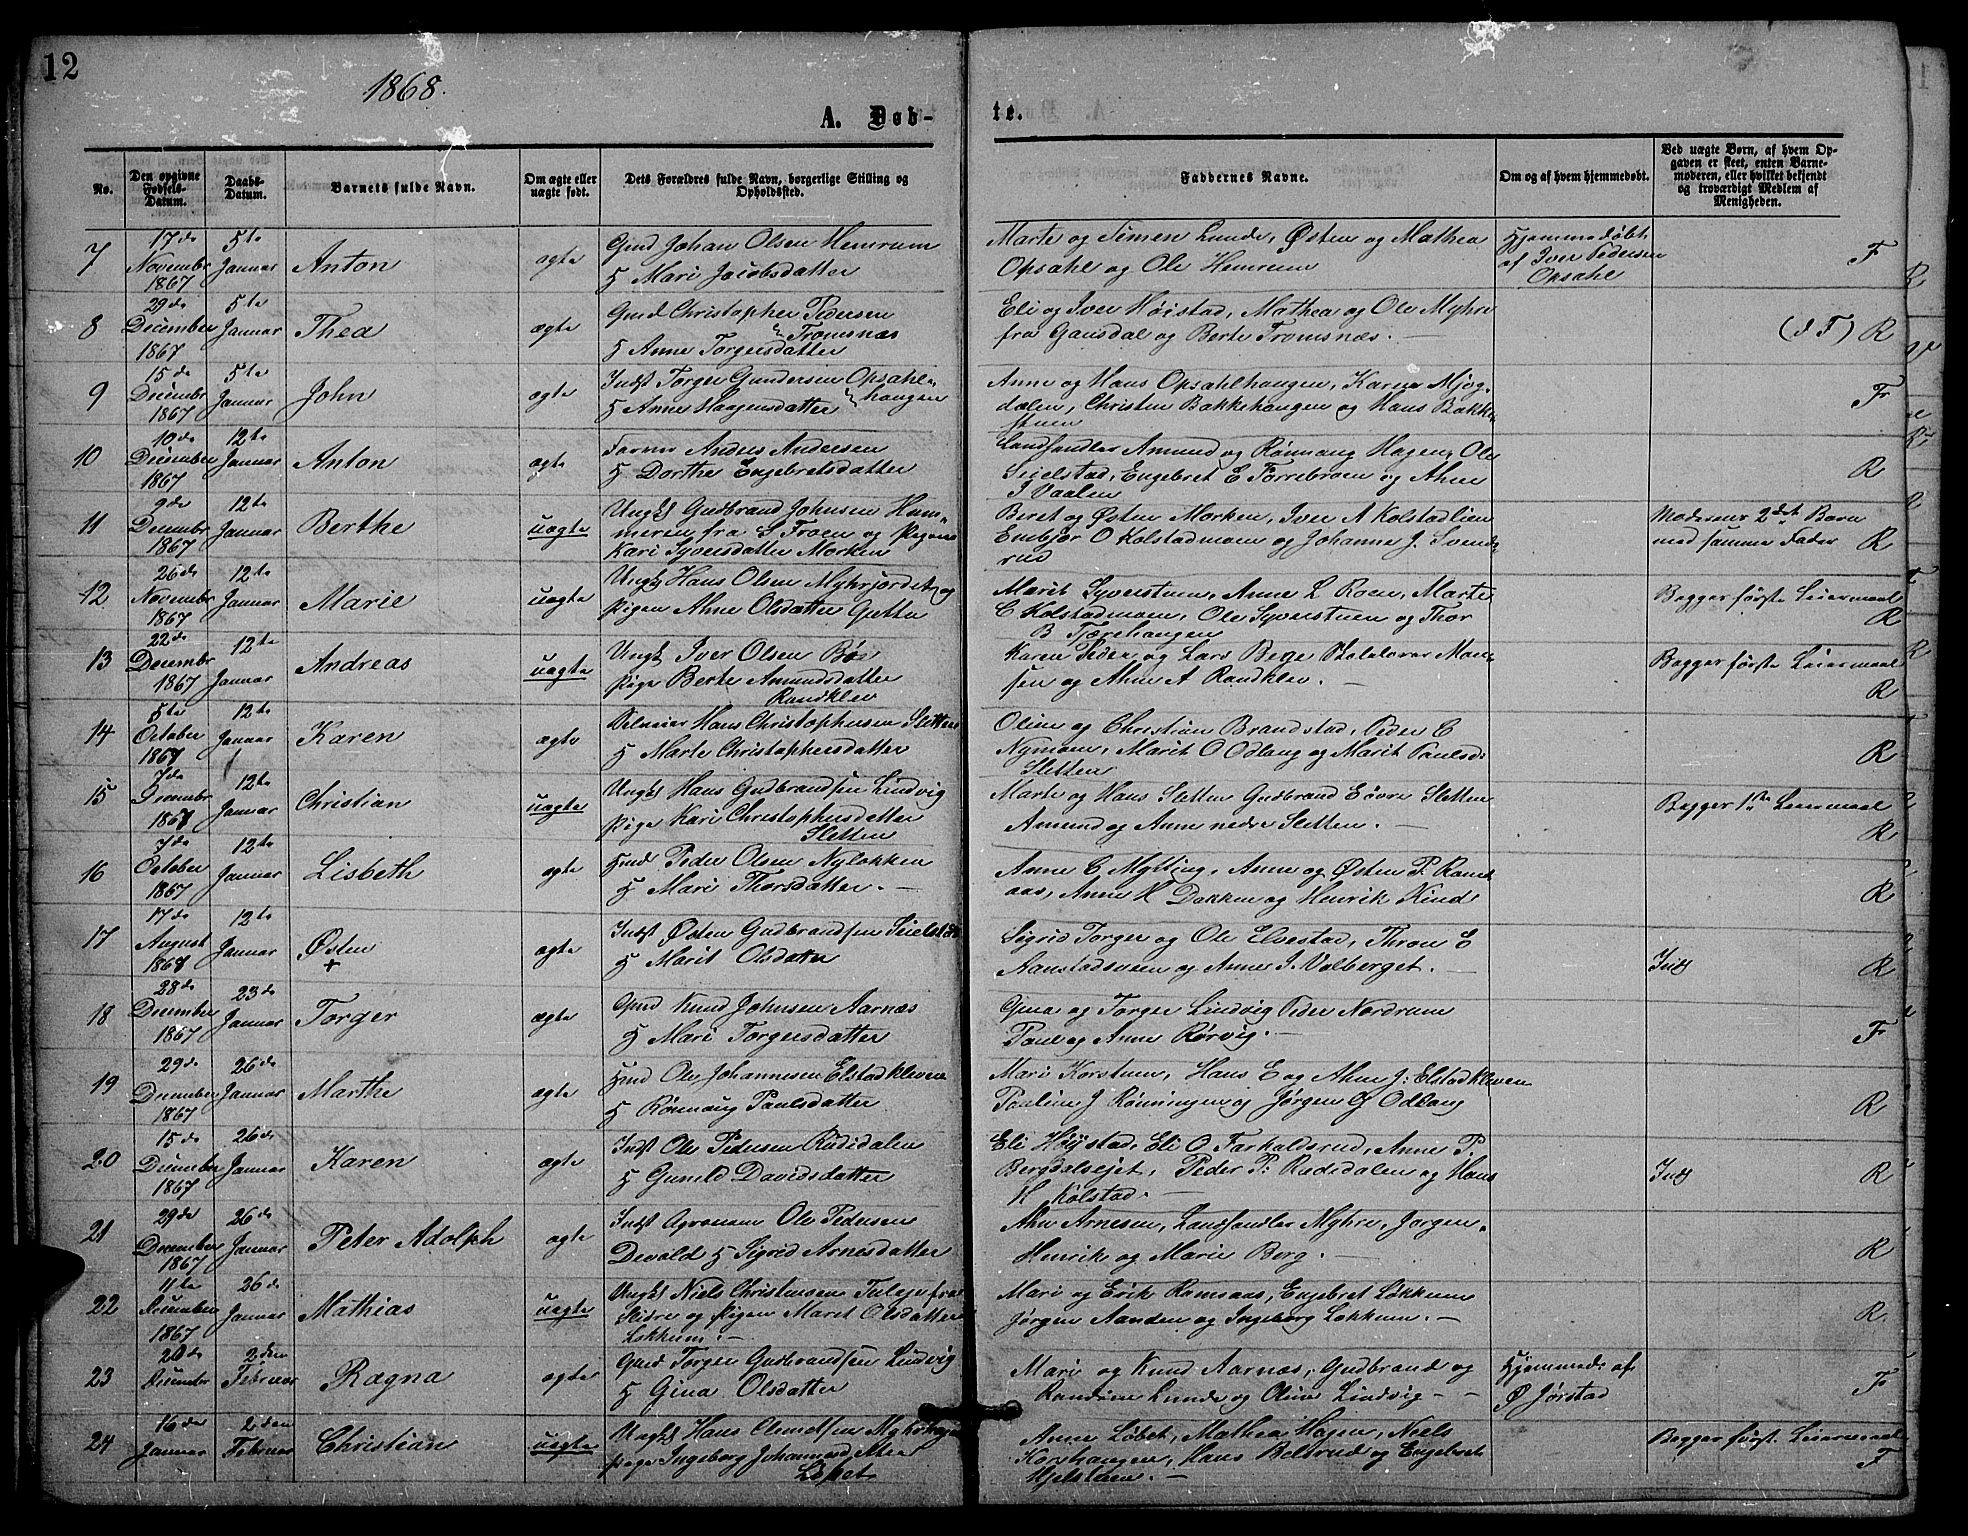 12
1868.
A. Døb-
te.
No.
Den opgivne Fødsels-Datum.
Daabs-Datum.
Barnets fulde Navn.
Om ægte eller uægte født.
Dets Forældres fulde Navn, borgerlige Stilling og Opholdssted.
Faddernes Navne.
Om og af hvem hjemmedøbt.
Ved uægte Børn, af hvem Op-
gaven er skeet, enten Barne-
moderen, eller hvilket bekjendt
og troværdigt Medlem af
Menigheden.
7 17de November 1867 5te Januar Anton ægte Gmd Johan Olsen Hemrum
H Mari Jacobsdatter
Marte og Simen Lunde, Østen og Mathea
Opsahl og Ole Hemrum
Hjemmedøbt
af Iver Pedersen
Opsahl
F
8 29de December 1867 5te Januar Thea ægte Gmd Christopher Pedersen
Tromsnæs
H Anne Torgersdatter
Eli og Iver Høistad, Mathea og Ole Myhre
fra Gausdal og Berte Tromsnæs.
(d F) R
9 15de December 1867 5te Januar John ægte Indst Torger Gundersen Opsahl-
H Anne Haagensdatter haugen
Anne og Hans Opsahlhaugen, Karen Mjog-
dalen, Christen Bakkehaugen og Hans Bakke-
stuen
Fr
10 10de December 1867 12te Januar Anton ægte Anders Andersen
H Dorthe Engebretsdatter
Landhandler Amund og Rønnaug Hagen, Ole
Seielstad, Engebret E Torrebroen og Ahne
I Vaalen
R
11 9de December 1867 12te Januar Berthe uægte Ungk Gudbrand Johnsen Ham-
meren fra S Froen og Pigen
Kari Syversdatter Morken
Beret og Østen Morken, Iver A Kolstadlien
Embjør O Kolstadmoen og Johanne J. Svends-
rud
Moderens 2det Barn
med samme Fader R
12 26de November 1867 12te Januar Marie uægte Ungk Hans Olsen Myhrjordet og
Pigen Ahne Olsdatter
Marit Syverstuen, Anne L Roen, Marte
C Kolstadmoen, Ole Syverstuen og Thor
B Tjærehaugen
Begges første Leiermaal
R
13 22de December 1867 12te Januar Andreas uægte Ungk Iver Olsen Bøe
Pige Berte Amundsdatter
Randklev
Karen Peder og Lars Berge
og Ahne A Randklev.
Begges første Leiermaal
R
14 5te October 1867 12te Januar Karen ægte Hans Christophersen Sletten
H Marte Christophersdatter
Oline og Christian Brandstad, Peder C
Nymoen, Marit O Odlaug og Marit Paulsd:
Sletten
R
15 7de December 1867 12te Januar Christian uægte Ungk Hans Gudbrandsen Lindvig
Pige Kari Christophersdatter
Sletten
Marte og Hans Sletten Gudbrand Søvre Sletten
Amund og Anne nedre Sletten.
Begges 1ste Leiermaal
R
16 7de October 1867 12te Januar Lisbeth ægte Hmd Peder Olsen Nyløkken
H Mari Thorsdatter.
Anne C Mytting, Anne og Østen P. Rams-
aas, Anne H Dakken og Henrik Kind
R
17 17de August 1867 12te Januar Østen
+
ægte Indst Østen Gudbrandsen Seielstad
H Marit Olsdatter
Sigrid Torger og Ole Elvestad, Thron E
Aanstadsveen og Anne I. Volberget.
Inds R
18 28de December 1867 23de Januar Torger ægte Gmd Knud Johnsen Aarnæs
H Mari Torgersdatter
Gina og Torger Lindvig Peder Nordrum
Paul og Anne Rørvig.
Fr
19 29de December 1867 26de Januar Marthe ægte Hmd Ole Johannesen Elstadkleven
H Rønnaug Paulsdatter
Mari Korstuen, Hans E og Ahne J: Elstadkleven
Pauline J Rønningen og Jørgen G Odlaug
R
20 15de December 1867 26de Januar Karen ægte Indst Ole Pedersen Rudidalen
H Gunild Davidsdatter
Eli Høystad, Eli O Farkaldsrud, Anne P.
Bergdelsejet, Peder P: Rudidalen og Hans
H Kolstad.
Inds R
21 29de December 1867 26de Januar Peter Adolph ægte Indst Agronom Ole Pedersen
Devold H Sigrid Arnesdatter
Ahne Arnesen, Landhandler Myhre, Jørgen,
Henrik og Marie Berg.
R
22 11te December 1867 26de Januar Mathias uægte Ungk Niels Christensen fra
Slidre og Pigen Maret Olsdatter
Løkkum.
Mari og Erik Ramsaas, Engebret Løkkum
Jørgen Aanden og Ingeborg Løkkum.
R
23 20de December 2den Februar Ragna ægte Gmd Torger Gudbrandsen Lindvig
H Gina Olsdatter
Mari og Knud Aarnæs, Gudbrand og
Randine Lunde og Oline Lindvig
Hjemmed: af
Ø Jørstad
Fr
24 16de Januar 2den Februar Christian uægte Ungk Hans Clemetsen
Pige Ingeborg Johannesdatter
Løbet
Anne Løbet, Mathea Hagen, Niels
Korshaugen, Hans Beltrud og Engebret
Hjelstuen.
Begges første Leiermaal
F